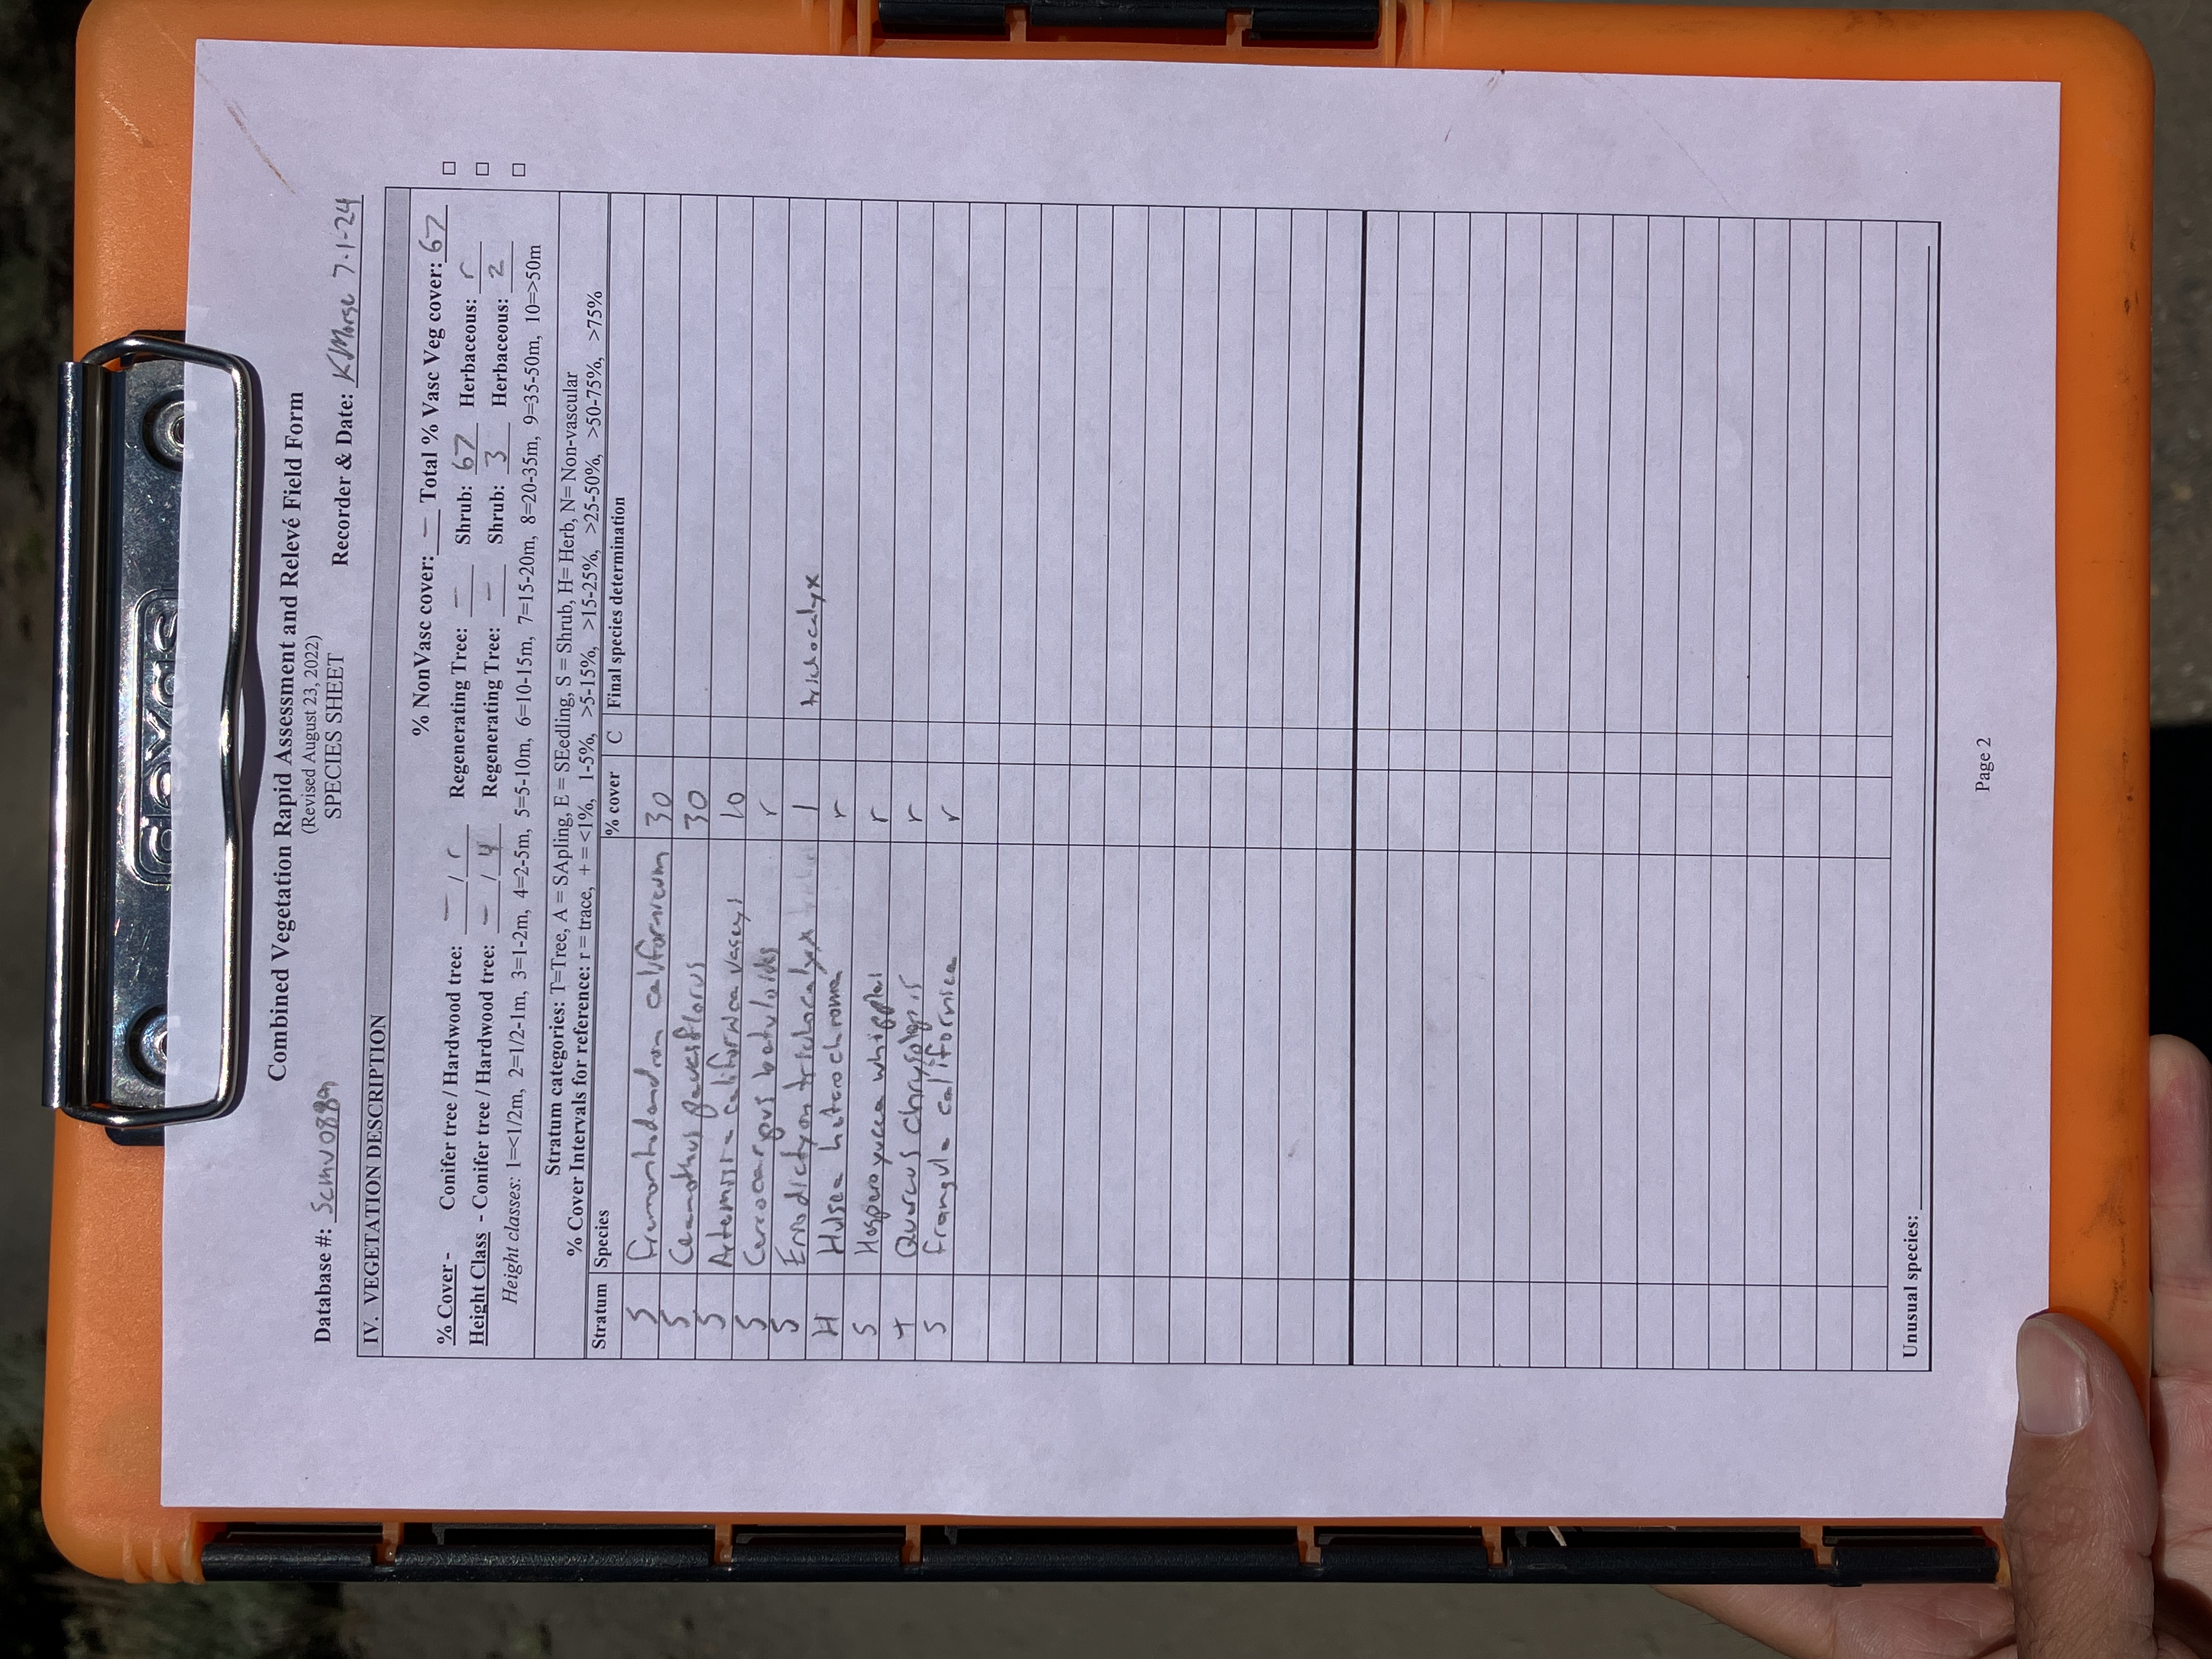 Combined Vegetation Rapid Assessment and Relevé Field Form
(Revised August 23, 2022)
SPECIES SHEET
Database #: Recorder & Date: KMorse 7-1-24
IV. VEGETATION DESCRIPTION
% NonVasc cover: — Total % Vasc Veg cover: 67
% Cover - Conifer tree / Hardwood tree: — / r Regenerating Tree: — Shrub: 67 Herbaceous: r
Height Class - Conifer tree / Hardwood tree: — / 4 Regenerating Tree: — Shrub: 3 Herbaceous: 2
Height classes: 1=<1/2m, 2=1/2-1m, 3=1-2m, 4=2-5m, 5=5-10m, 6=10-15m, 7=15-20m, 8=20-35m, 9=35-50m, 10=>50m
Stratum categories: T=Tree, A = SApling, E = SEedling, S = Shrub, H= Herb, N= Non-vascular
% Cover Intervals for reference: r = trace, + = <1%, 1-5%, >5-15%, >15-25%, >25-50%, >50-75%, >75%
Stratum Species % cover C Final species determination
S Fremontodendron californicum 30
S Ceanothus 30
S Artemisia californica 10
S Cercocarpus betuloides r
S Eriodictyon trichocalyx 1 trichocalyx
H Hulsea heterochroma r
S Hesperoyucca whipplei r
T Quercus chrysolepis r
S Frangula californica r
Unusual species:
Page 2